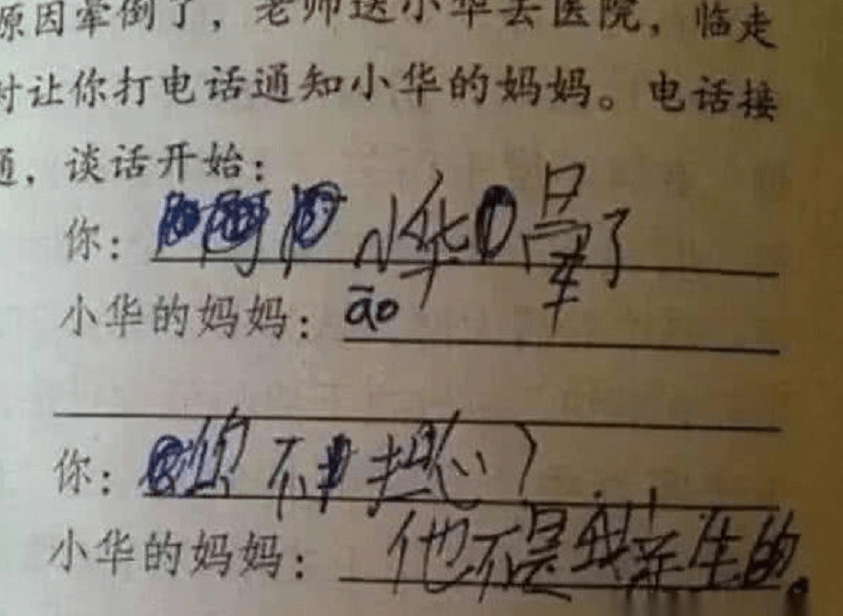 原因晕倒了，老师送小华去医院，临走
时让你打电话通知小华的妈妈。电话接
通，谈话开始：
你：小华晕了
小华的妈妈：āo
你：你不担心？
小华的妈妈：他不是我亲生的。